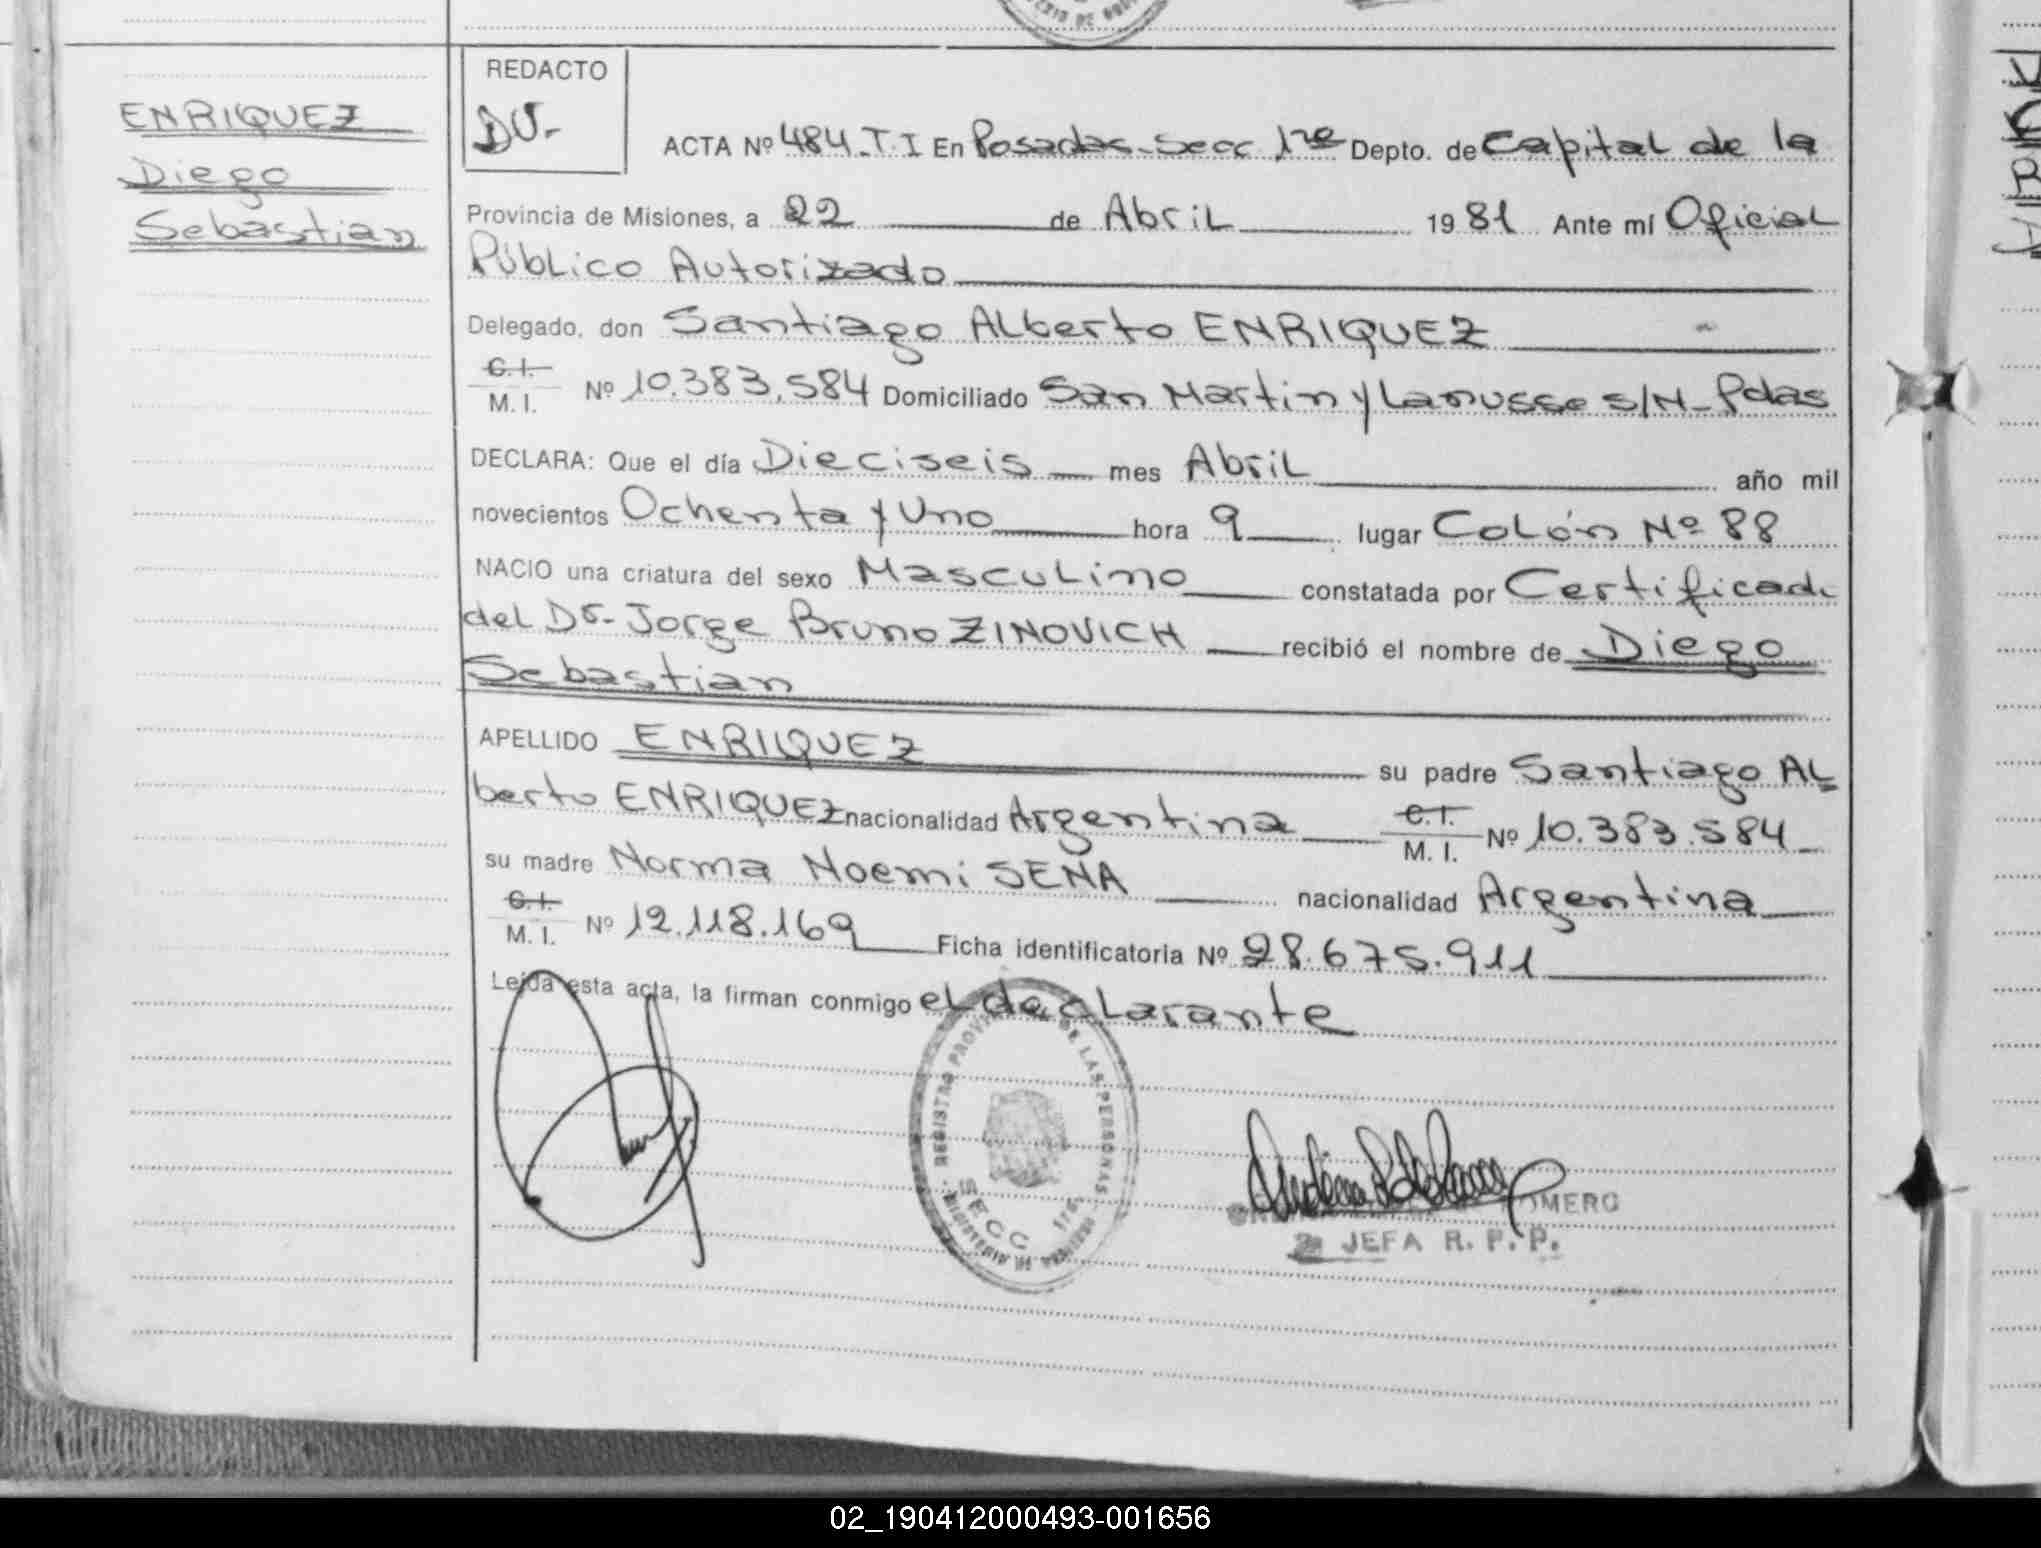 ENRIQUEZ
Diego
Sebastian
REDACTO
DV-
ACTA Nº 484-T.I En Posadas-Secc 1ra Depto. de Capital de la
Provincia de Misiones, a 22 de Abril 1981 Ante mí Oficial
Público Autorizado
Delegado, don Santiago Alberto ENRIQUEZ
C. I.
M. I. Nº 10.383.584 Domiciliado San Martin y Lanusse S/N- Pdas
DECLARA: Que el día Dieciseis mes Abril año mil
novecientos Ochenta y Uno hora 9 lugar Colón Nº 88
NACIO una criatura del sexo Masculino constatada por Certificado
del Dr- Jorge Bruno ZINOVICH recibió el nombre de Diego
Sebastian
APELLIDO ENRIQUEZ su padre Santiago Al
berto ENRIQUEZ nacionalidad Argentina C. I. M. I. Nº 10.383.584
su madre Norma Noemi SENA nacionalidad Argentina
C. I.
M. I. Nº 12.118.169 Ficha identificatoria Nº 28.675.911
Leída esta acta, la firman conmigo el declarante
REGISTRO PROVINCIAL DE LAS PERSONAS
SECC 1ra
ROMERO
JEFA R. P. P.
02_190412000493-001656